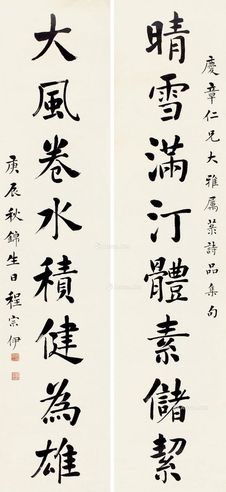 慶章仁兄大雅屬菉詩品集句
晴雪滿汀體素儲絜
大風卷水積健為雄
庚辰秋錦生日程宗伊